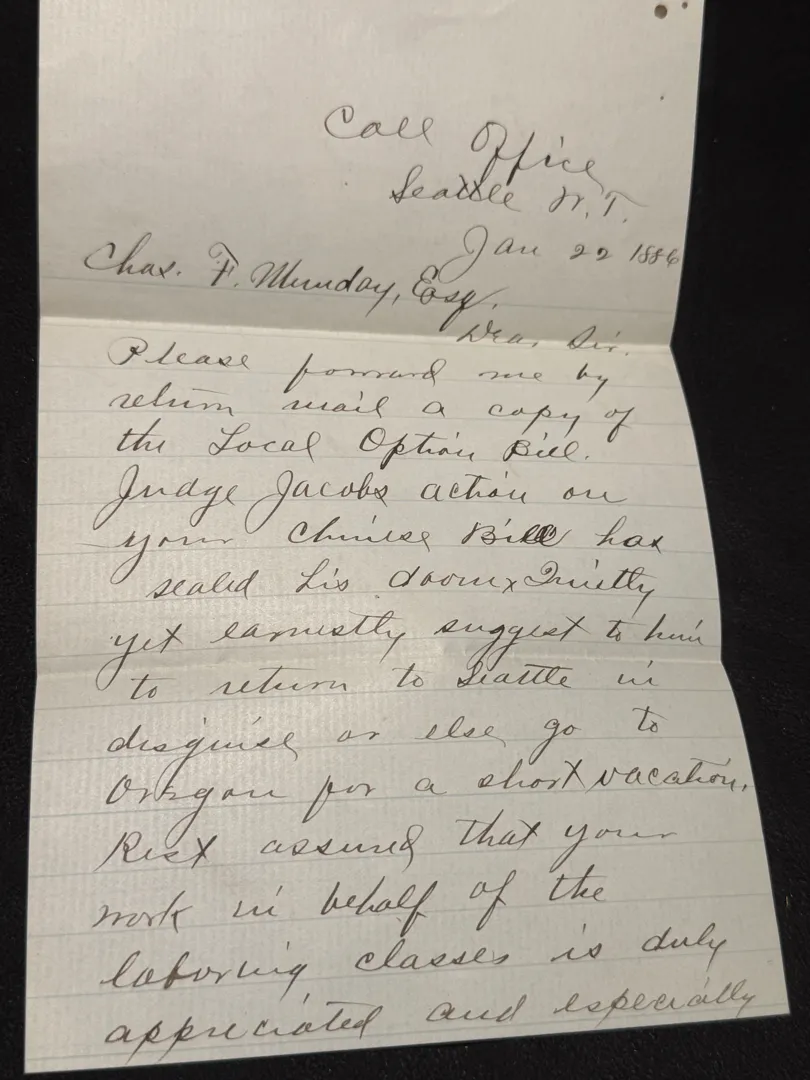 Call Office
Seattle W.T.
Jan 22 1886
Chas. F. Munday, Esq.
Dear Sir.
Please forward me by
return mail a copy of
the Local Option Bill.
Judge Jacobs action on
your Chinese Bill has
sealed his doom. Quietly
yet earnestly suggest to him
to return to Seattle in
disguise or else go to
Oregon for a short vacation.
Rest assured that your
work in behalf of the
laboring classes is duly
appreciated and especially